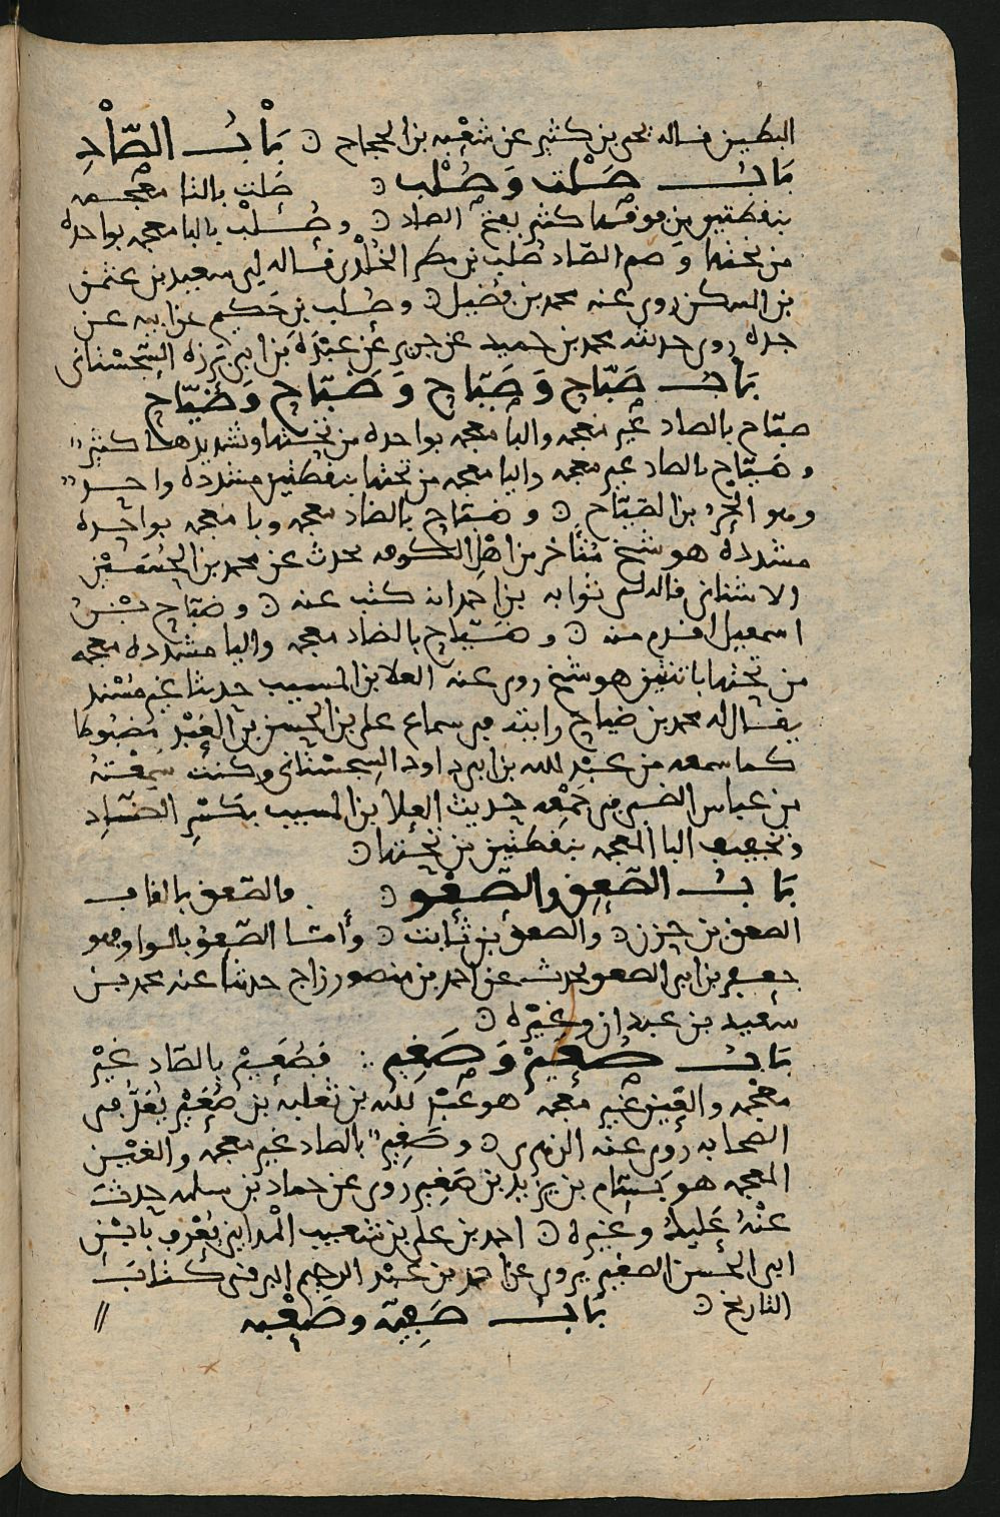 البطين قاله يحيى بن كثير عن شعبه بن الحجاج ٥ بَابُ الصَّادِ
بَابُ صَلْت وَصُلْب ٥ صَلت بالتا معجمه
بنقطتين من فوقها كثير بفتح الصاد ٥ وصُلْب بالبا معجمه بواحده
من تحتها وضم الصّاد صُلب بن مطر الخُلْدى قاله لى سعيد بن عثمن
بن السكن روى عنه محمد بن فضيل ٥ وصُلب بن حَكيم عن ابيه عن
جده روى حديثه محمد بن حميد عن جرير عن عَبْدَة بن ابى بَرزه السِّجسْتانى
بَابُ صَبَّاح وَصَيَّاح وَضَبَّاح وَضَيَّاح
صبّاح بالصاد غير معجمه والبا معجمه بواحده من تحتها وتشديدها كثير
وصَيّاح بالصاد غير معجمه واليا معجمه من تحتها بنقطتين مشدده واحد
وهو الحُر بن الصَّيّاح ٥ وضبّاح بالضاد معجمه وبا معجمه بواحدة
مشددة هو شيخ متأخر من اهل الكوفه يحدث عن محمد بن الحسين
الاشنانى قاله لى ثوابه بن احمد انه كتب عنه ٥ وضبّاح بْنُ
اسمعيل اقدم منه ٥ وضَيّاح بالضاد معجمه واليا مشدده معجمه
من تحتها باثنتين هو شيخ روى عنه العلا بن المسيب حديثا غير مسند
يقال له محمد بن ضياح رايته فى سماع على بن الحسن بن العَبْد مضبوطا
كما سمعه من عبد الله بن ابى داود السجستانى وكنت سمعته
من عباس الضبى فى جَمْعِه حديث العلا بن المسيب بكَسْرِ الضّادِ
وتخفيف اليا المعجمه بنقطتين من تحتها ٥
بَابُ الصَّعِق والصَّعْو ٥ فالصَّعق بالقاف
الصعق بن حزن ٥ والصعق بن ثابت ٥ وأمّا الصَّعْوُ بالواو فهو
جعفر بن ابى الصعو يحدث عن احمد بن منصور زاج حدثنا عنه محمد بن
سعيد بن عبدان وغيْره ٥
بَابُ صُعَيْر وَصَغير فصُعَيْر بالصّاد غيْر
معْجمه والعَين غير معجمه هو عَبْد الله بن ثعلبه بن صُعَيْر يُعَدُّ فى
الصحابه روى عنه الزهرى ٥ وصَغِير بالصاد غير معجمه والغيْن
المعجمه هو بسْطام بن يزيد بن صَغير روى عن حماد بن سلمه حدث
عنْهُ عَلِيك وغيره ٥ احمد بن على بن شعيب المداينى يُعْرف بابْن
ابى الحسن الصغير يروى عن احمد بن عَبْد الرحيم البرقى كتاب
التاريخ ٥ بَابُ صَفِيّة وصَعْبه